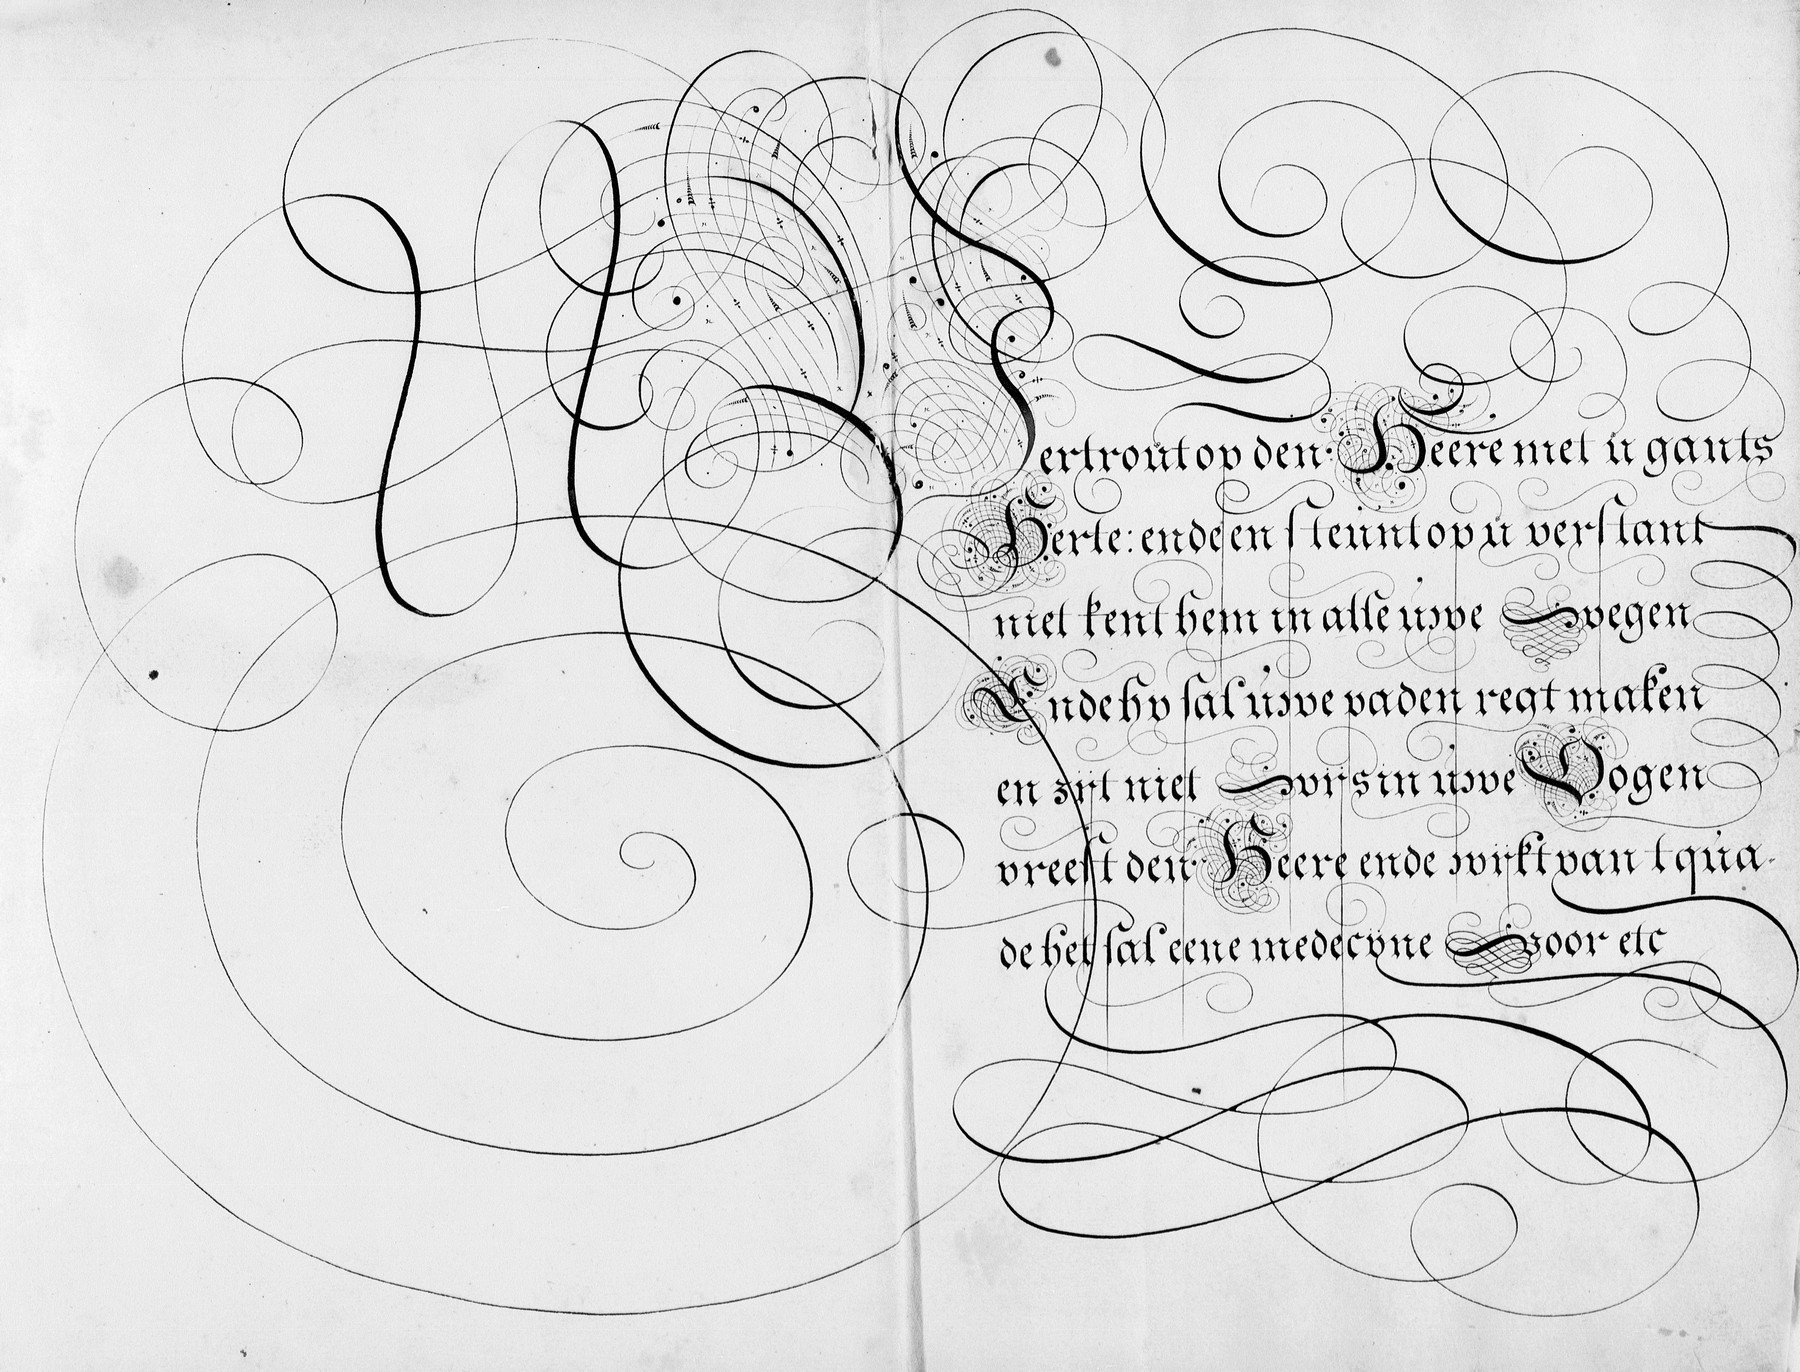 Vertrout op den Heere met u gants
Herte: ende en steunt op u verstant
niet kent hem in alle uwe wegen
Ende hy sal uwe paden regt maken
en zijt niet wijs in uwe Oogen
vreest den Heere ende wijkt van t qua-
de het sal eene medecyne zoor etc